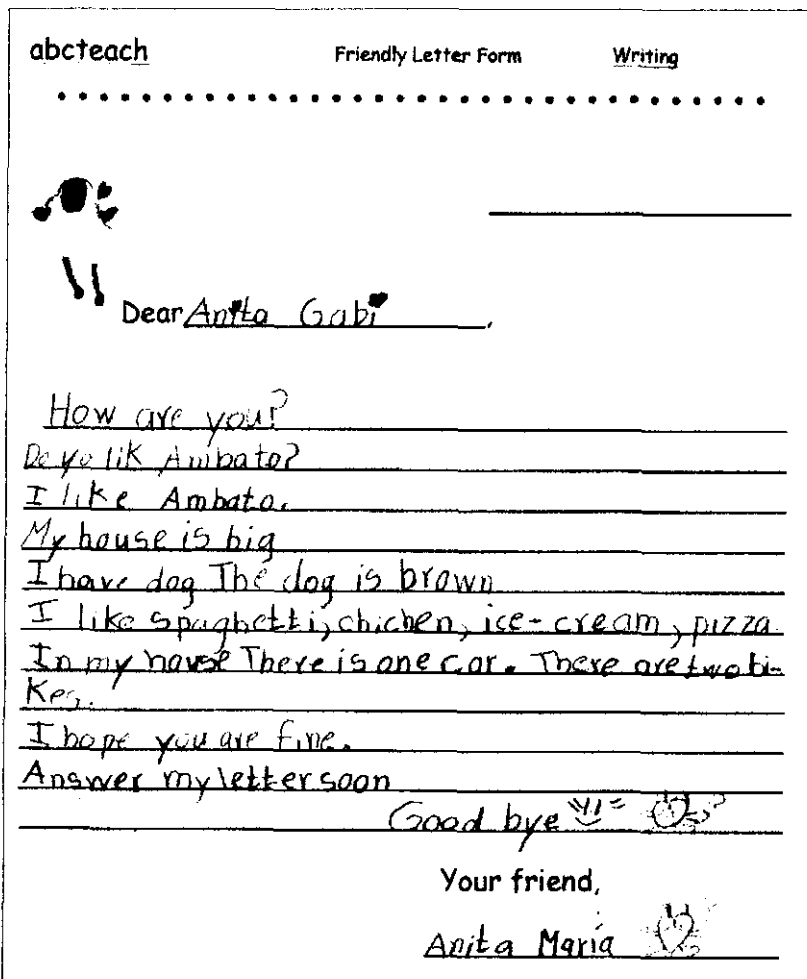 abcteach Friendly Letter Form Writing
Dear Anita Gabi,
How are you?
Do yo lik Ambato?
I like Ambato.
My house is big
I have dog The dog is brown
I like spaghetti, chichen, ice-cream, pizza
In my house There is one car. There are two bi-
kes.
I hope you are fine.
Answer my letter soon
Good bye
Your friend,
Anita Maria